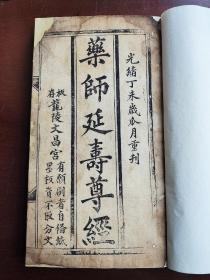 光緒丁未歲瓜月重刊
藥師延壽尊經
板存龍陵文昌宮
有願刷者自備紙
墨板資不取分文